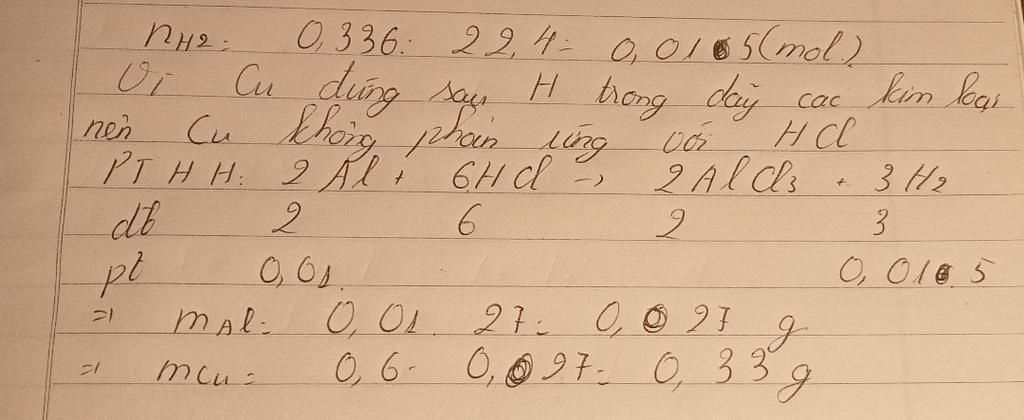 nH2 = 0,336 : 22,4 = 0,015 (mol)
Vì Cu đứng sau H trong dãy các kim loại
nên Cu không phản ứng với HCl
PTHH: 2Al + 6HCl -> 2AlCl3 + 3H2
đb 2 6 2 3
pt 0,01 0,015
=> mAl = 0,01 . 27 = 0,027 g
=> mCu = 0,6 - 0,027 = 0,33 g